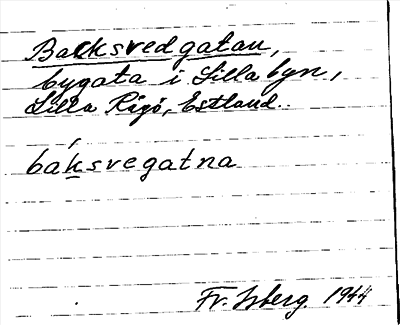 Backsvedgatan,
bygata i Lilla byn,
Lilla Rågö, Estland.
baksvegatna
Fr. Isberg 1944